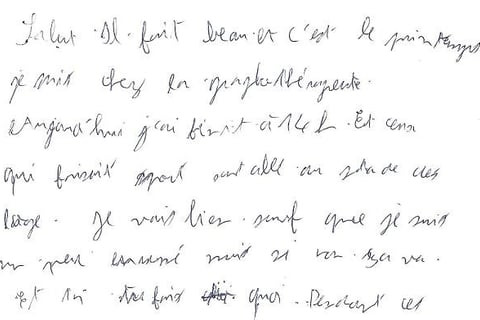 Salut. Il fait beau et c'est le printemps
je suis chez la graphothérapeute.
Aujourd'hui j'ai finit à 14h. Et ceux
qui faisait sport sont allé au stade des
. Je vais bien sauf que je suis
un peu mais si non sa va.
Et toi tu fais quoi. Pendant ces